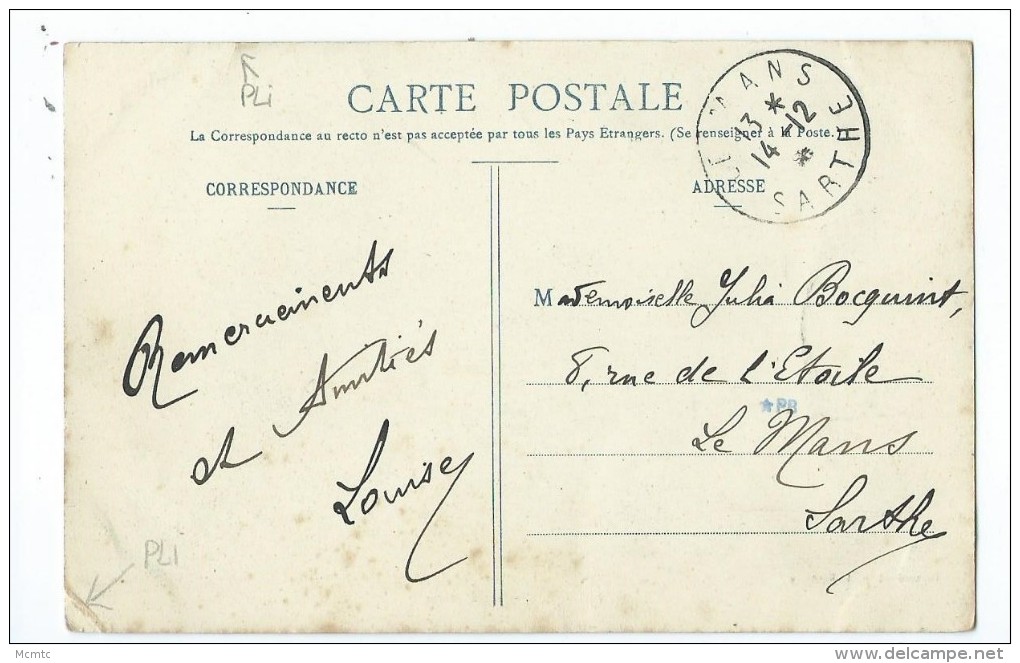 PLi
CARTE POSTALE
La Correspondance au recto n'est pas acceptée par tous les Pays Etrangers. (Se renseigner à la Poste.)
CORRESPONDANCE
ADRESSE
LE MANS
13 *
14-12
*
SARTHE
Remerciements
et Amitiés
Louise
Mademoiselle Julia Bocquint,
8, rue de l'Etoile
*PR
Le Mans
Sarthe
PLi
Mcmtc
www.delcampe.net